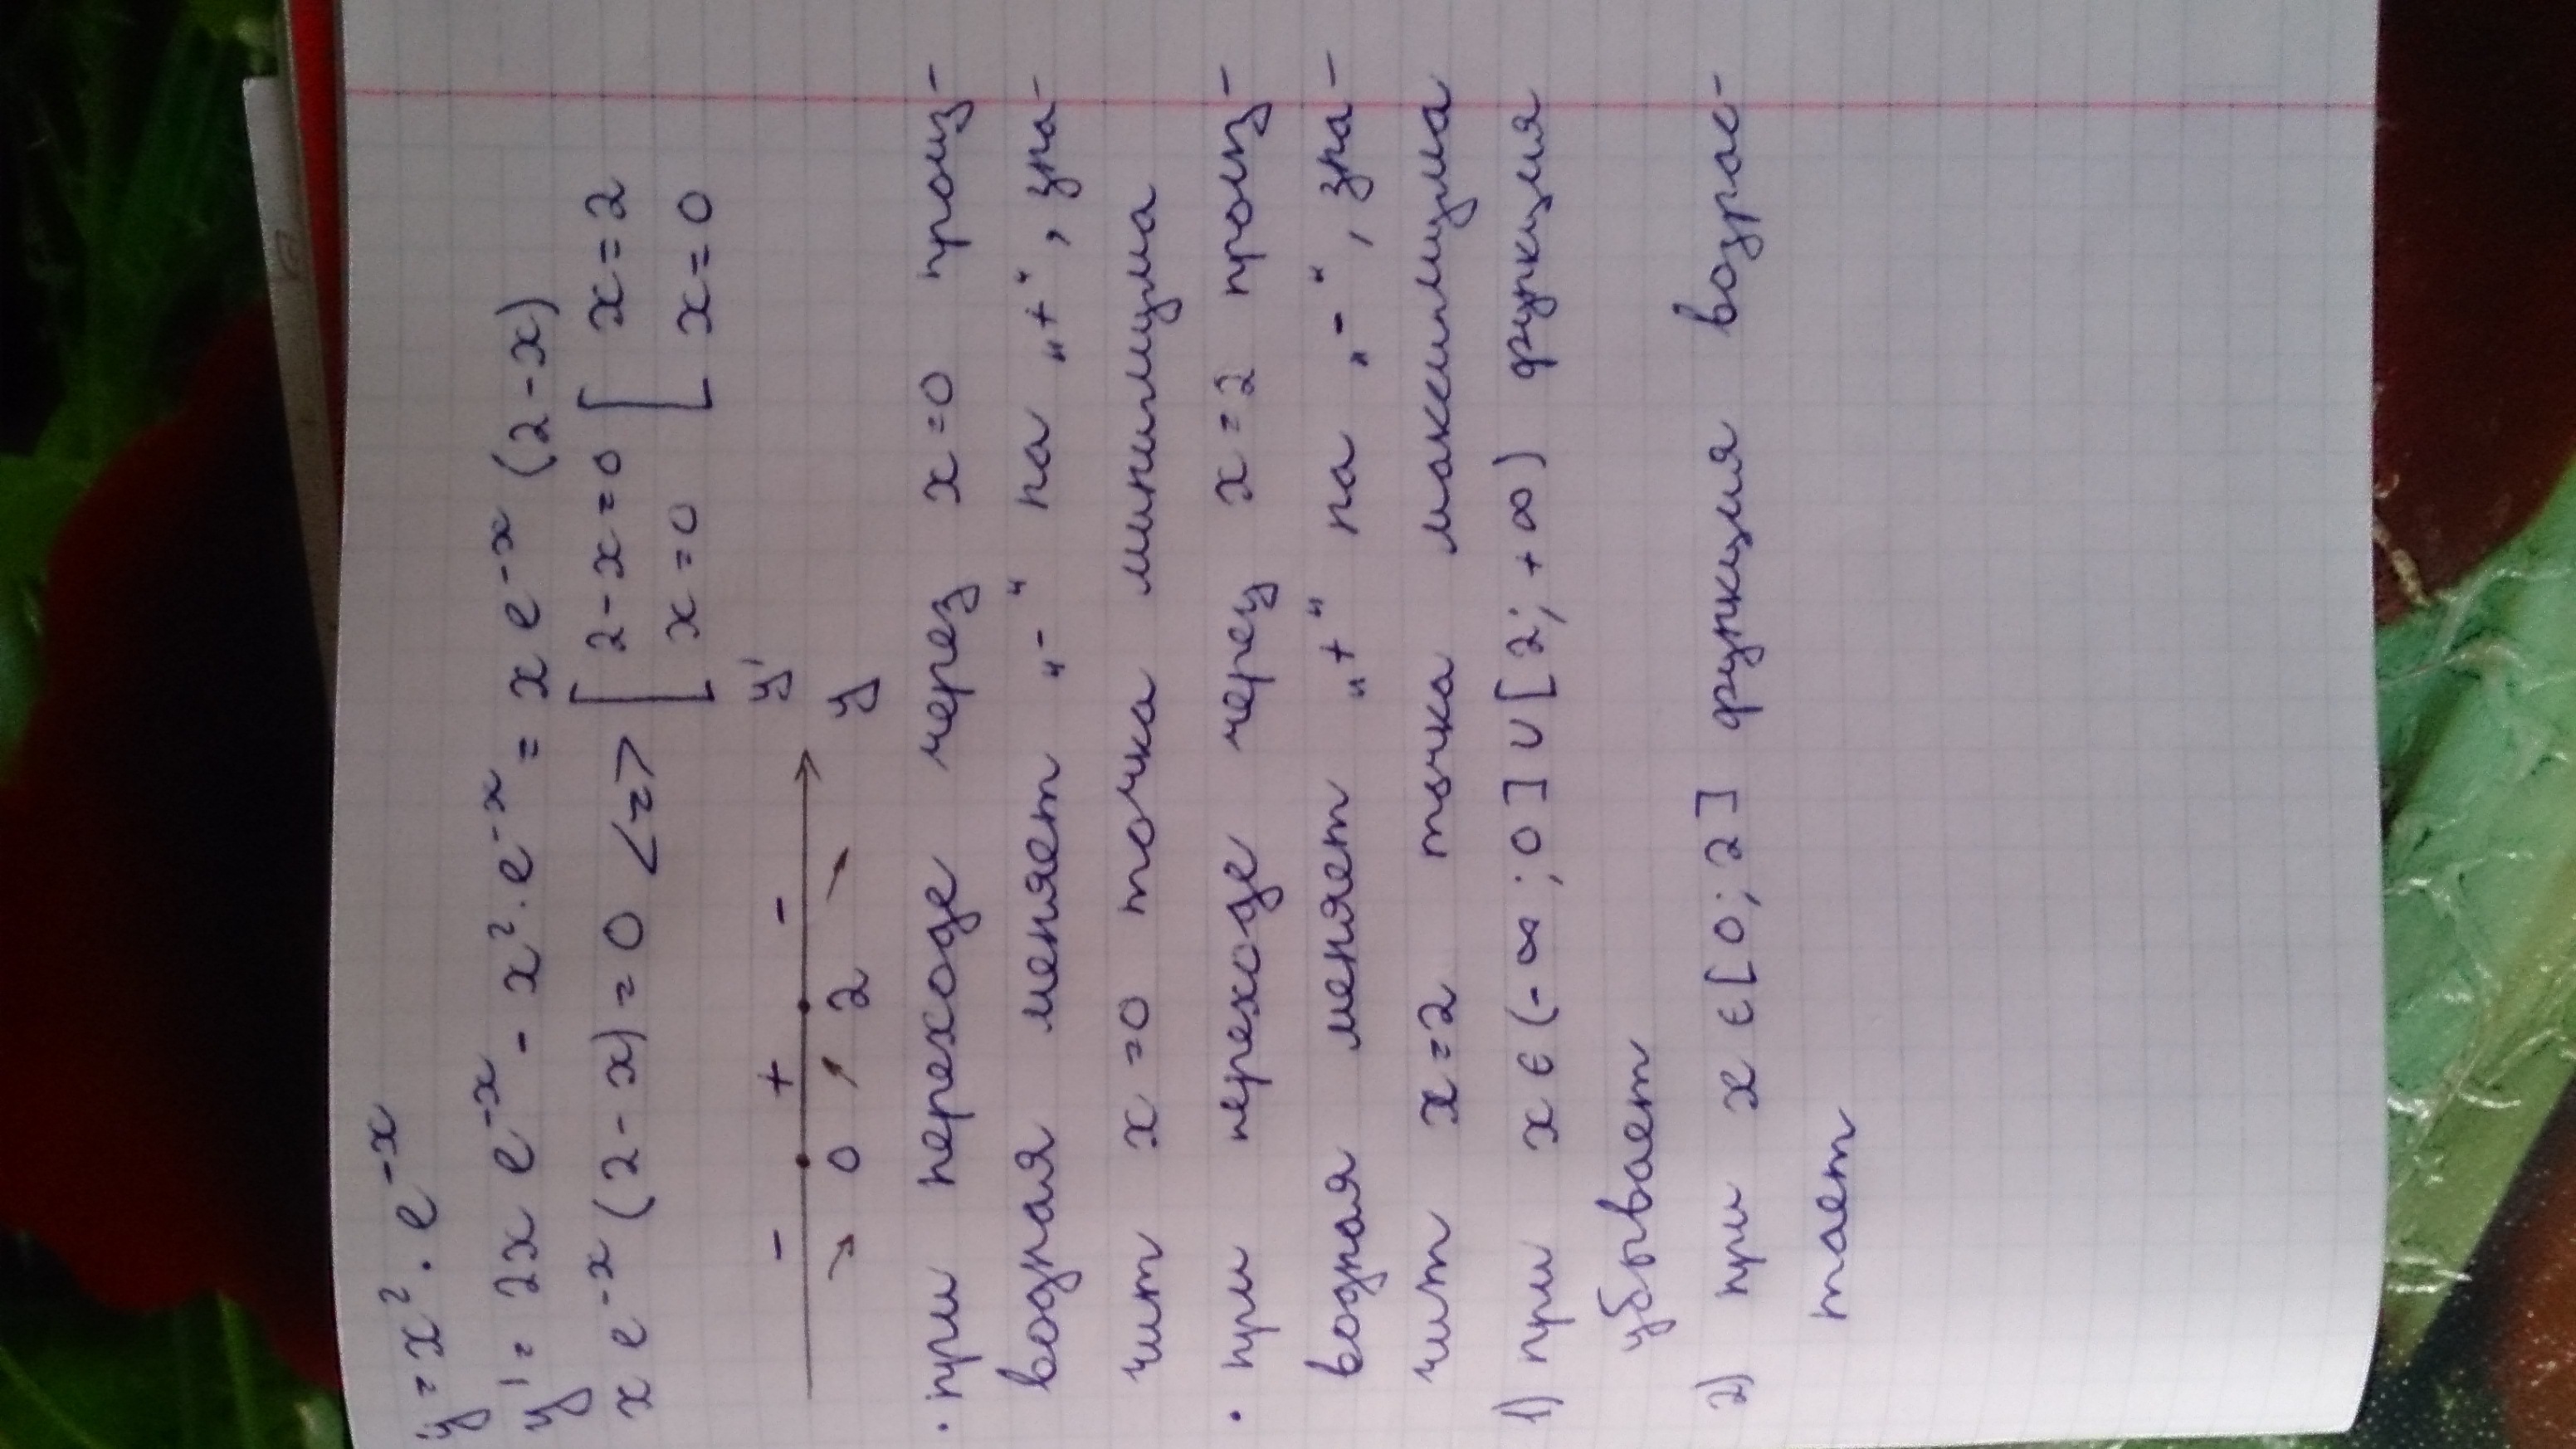 y = x² · e⁻ˣ
y' = 2x e⁻ˣ - x² · e⁻ˣ = x e⁻ˣ (2 - x)
x e⁻ˣ (2 - x) = 0 <=> [ 2 - x = 0 [ x = 2
x = 0 x = 0
- + - y'
0 2 y
· при переходе через x = 0 произ-
водная меняет "-" на "+", зна-
чит x = 0 точка минимума
· при переходе через x = 2 произ-
водная меняет "+" на "-", зна-
чит x = 2 точка максимума
1) при x ∈ (-∞; 0] ∪ [2; +∞) функция
убывает
2) при x ∈ [0; 2] функция возрас-
тает